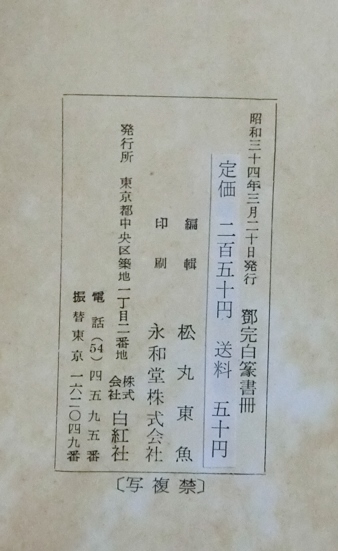 昭和三十四年三月二十日発行　鄧完白篆書冊
定価　二百五十円　送料　五十円
編輯　松丸東魚
印刷　永和堂株式会社
発行所　東京都中央区築地一丁目二番地　株式会社　白紅社
電話(54)四五九五番
振替東京一六二〇四九番
〔禁複写〕